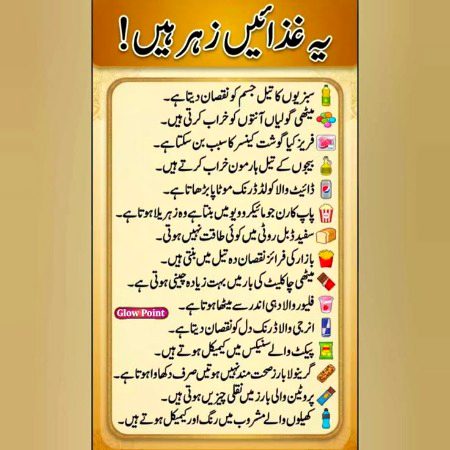 یہ غذائیں زہر ہیں!
سبزیوں کا تیل جسم کو نقصان دیتا ہے۔
میٹھی گولیاں آنتوں کو خراب کرتی ہیں۔
فریز کیا گوشت کینسر کا سبب بن سکتا ہے۔
بیجوں کے تیل ہارمون خراب کرتے ہیں۔
ڈائیٹ والا کولڈ ڈرنک موٹاپا بڑھاتا ہے۔
پاپ کارن جو مائیکروویو میں بنتا ہے وہ زہریلا ہوتا ہے۔
سفید ڈبل روٹی میں کوئی طاقت نہیں ہوتی۔
بازار کی فرائز نقصان دہ تیل میں بنتی ہیں۔
میٹھی چاکلیٹ کی بار میں بہت زیادہ چینی ہوتی ہے۔
فلیور والا دہی اندر سے میٹھا ہوتا ہے۔
Glow Point
انرجی والا ڈرنک دل کو نقصان دیتا ہے۔
پیکٹ والے سنیکس میں کیمیکل ہوتے ہیں۔
گرینولا بارز صحت مند نہیں ہوتیں صرف دکھاوا ہوتا ہے۔
پروٹین والی بارز میں نقلی چیزیں ہوتی ہیں۔
کھیلوں والے مشروب میں رنگ اور کیمیکل ہوتے ہیں۔